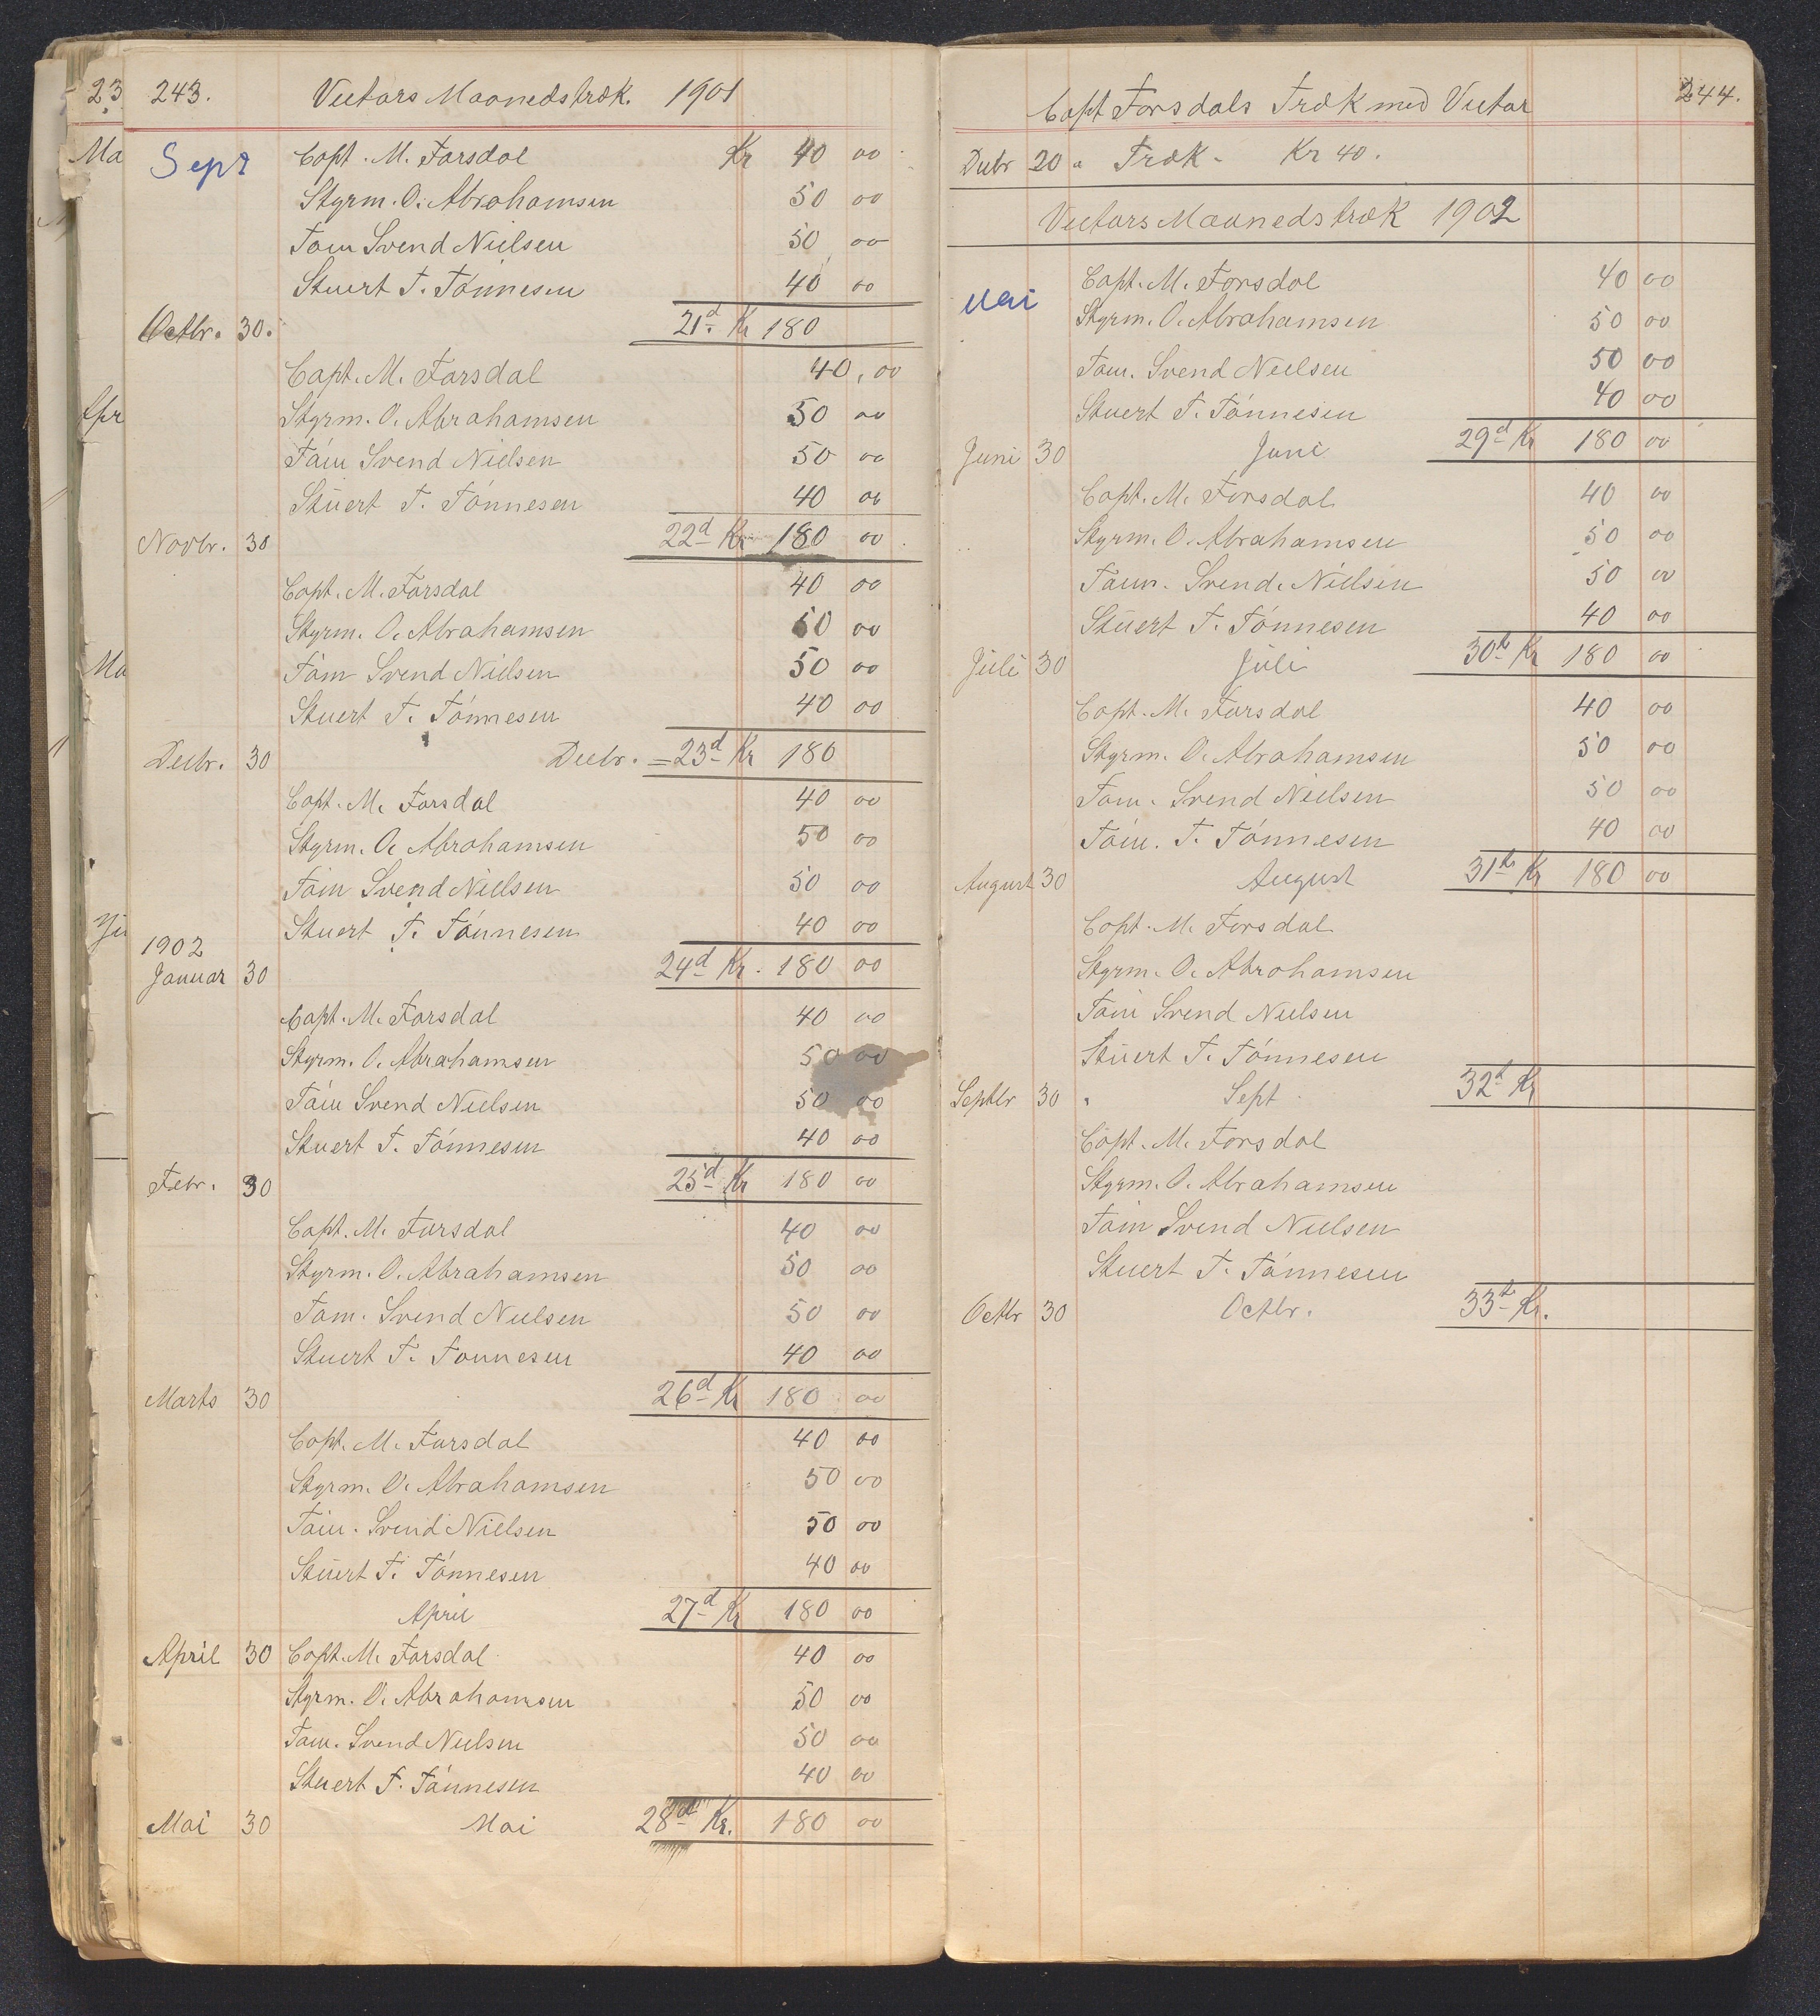 23
Ma
Apr
Ma
243. Victors Maanedstræk. 1901
Sept Capt. M. Farsdal Kr 40 00
Styrm. O. Abrahamsen 50 00
Tøm Svend Nielsen 50 00
Stuert T. Tönnesen 40 00
Octbr. 30. 21d Kr 180
Capt. M. Farsdal 40,00
Styrm. O. Abrahamsen 50 00
Tøm Svend Nielsen 50 00
Stuert T. Tönnesen 40 00
Novbr. 30 22d Kr 180 00
Capt. M. Farsdal 40 00
Styrm. O. Abrahamsen 50 00
Tøm Svend Nielsen 50 00
Stuert T. Tönnesen 40 00
Decbr. 30 Decbr. = 23d Kr 180
Capt. M. Farsdal 40 00
Styrm. O. Abrahamsen 50 00
Tøm Svend Nielsen 50 00
Stuert T. Tönnesen 40 00
1902
Januar 30 24d Kr. 180 00
Capt. M. Farsdal 40 00
Styrm. O. Abrahamsen 50 00
Tøm Svend Nielsen 50 00
Stuert T. Tönnesen 40 00
Febr. 30 25d Kr 180 00
Capt. M. Farsdal 40 00
Styrm. O. Abrahamsen 50 00
Tøm. Svend Nielsen 50 00
Stuert T. Tonnesen 40 00
Marts 30 26d Kr 180 00
Capt. M. Farsdal 40 00
Styrm. O. Abrahamsen 50 00
Tøm. Svend Nielsen 50 00
Stuert T. Tönnesen 40 00
April 27d Kr 180 00
April 30 Capt. M. Farsdal 40 00
Styrm. O. Abrahamsen 50 00
Tøm. Svend Nielsen 50 00
Stuert T. Tönnesen 40 00
Mai 30 Mai 28d Kr. 180 00
244.
Capt Farsdals Træk med Victor
Decbr 20 " Træk - Kr 40.
Victors Maanedstræk 1902
Mai Capt. M. Farsdal 40 00
Styrm. O. Abrahamsen 50 00
Tøm. Svend Nielsen 50 00
Stuert T. Tönnesen 40 00
Juni 30 Juni 29d Kr 180 00
Capt. M. Farsdal 40 00
Styrm. O. Abrahamsen 50 00
Tøm. Svend. Nielsen 50 00
Stuert T. Tönnesen 40 00
Juli 30 Juli 30te Kr 180 00
Capt. M. Farsdal 40 00
Styrm. O. Abrahamsen 50 00
Tøm. Svend Nielsen 50 00
Tøm. T. Tönnesen 40 00
August 30 August 31te Kr 180 00
Capt. M. Farsdal
Styrm. O. Abrahamsen
Tøm Svend Nielsen
Stuert T. Tönnesen
Septbr 30 " Sept 32t Kr
Capt. M. Farsdal
Styrm. O. Abrahamsen
Tøm Svend Nielsen
Stuert T. Tönnesen
Octbr 30 Octbr. 33t Kr.